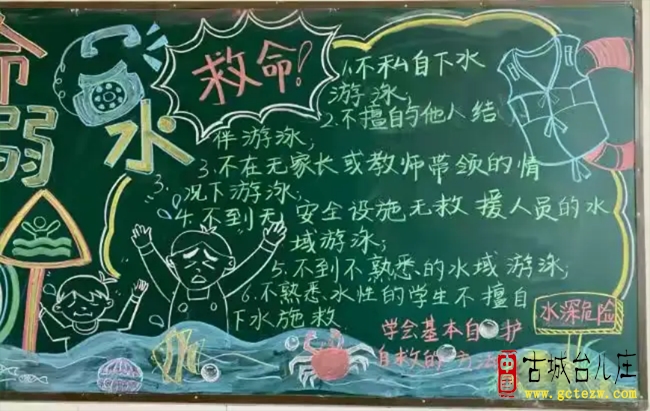 命
弱水
救命!
1.不私自下水
游泳;
2.不擅自与他人结
伴游泳;
3.不在无家长或教师带领的情
3.
况下游泳;
4.不到无 安全设施无救援人员的水
域游泳;
5.不到不熟悉的水域游泳;
6.不熟悉水性的学生不擅自
下水施救.
学会基本自 护
自救的 方
水深危险
中国
古城台儿庄
www.gctezw.com